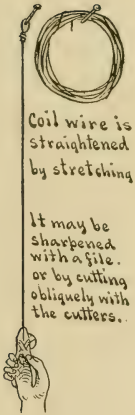 Coil wire is
straightened
by stretching
It may be
sharpened
with a file.
or by cutting
obliquely with
the cutters.